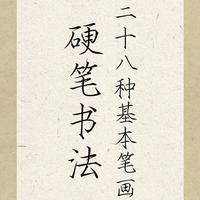 二十八种基本笔画
硬笔书法